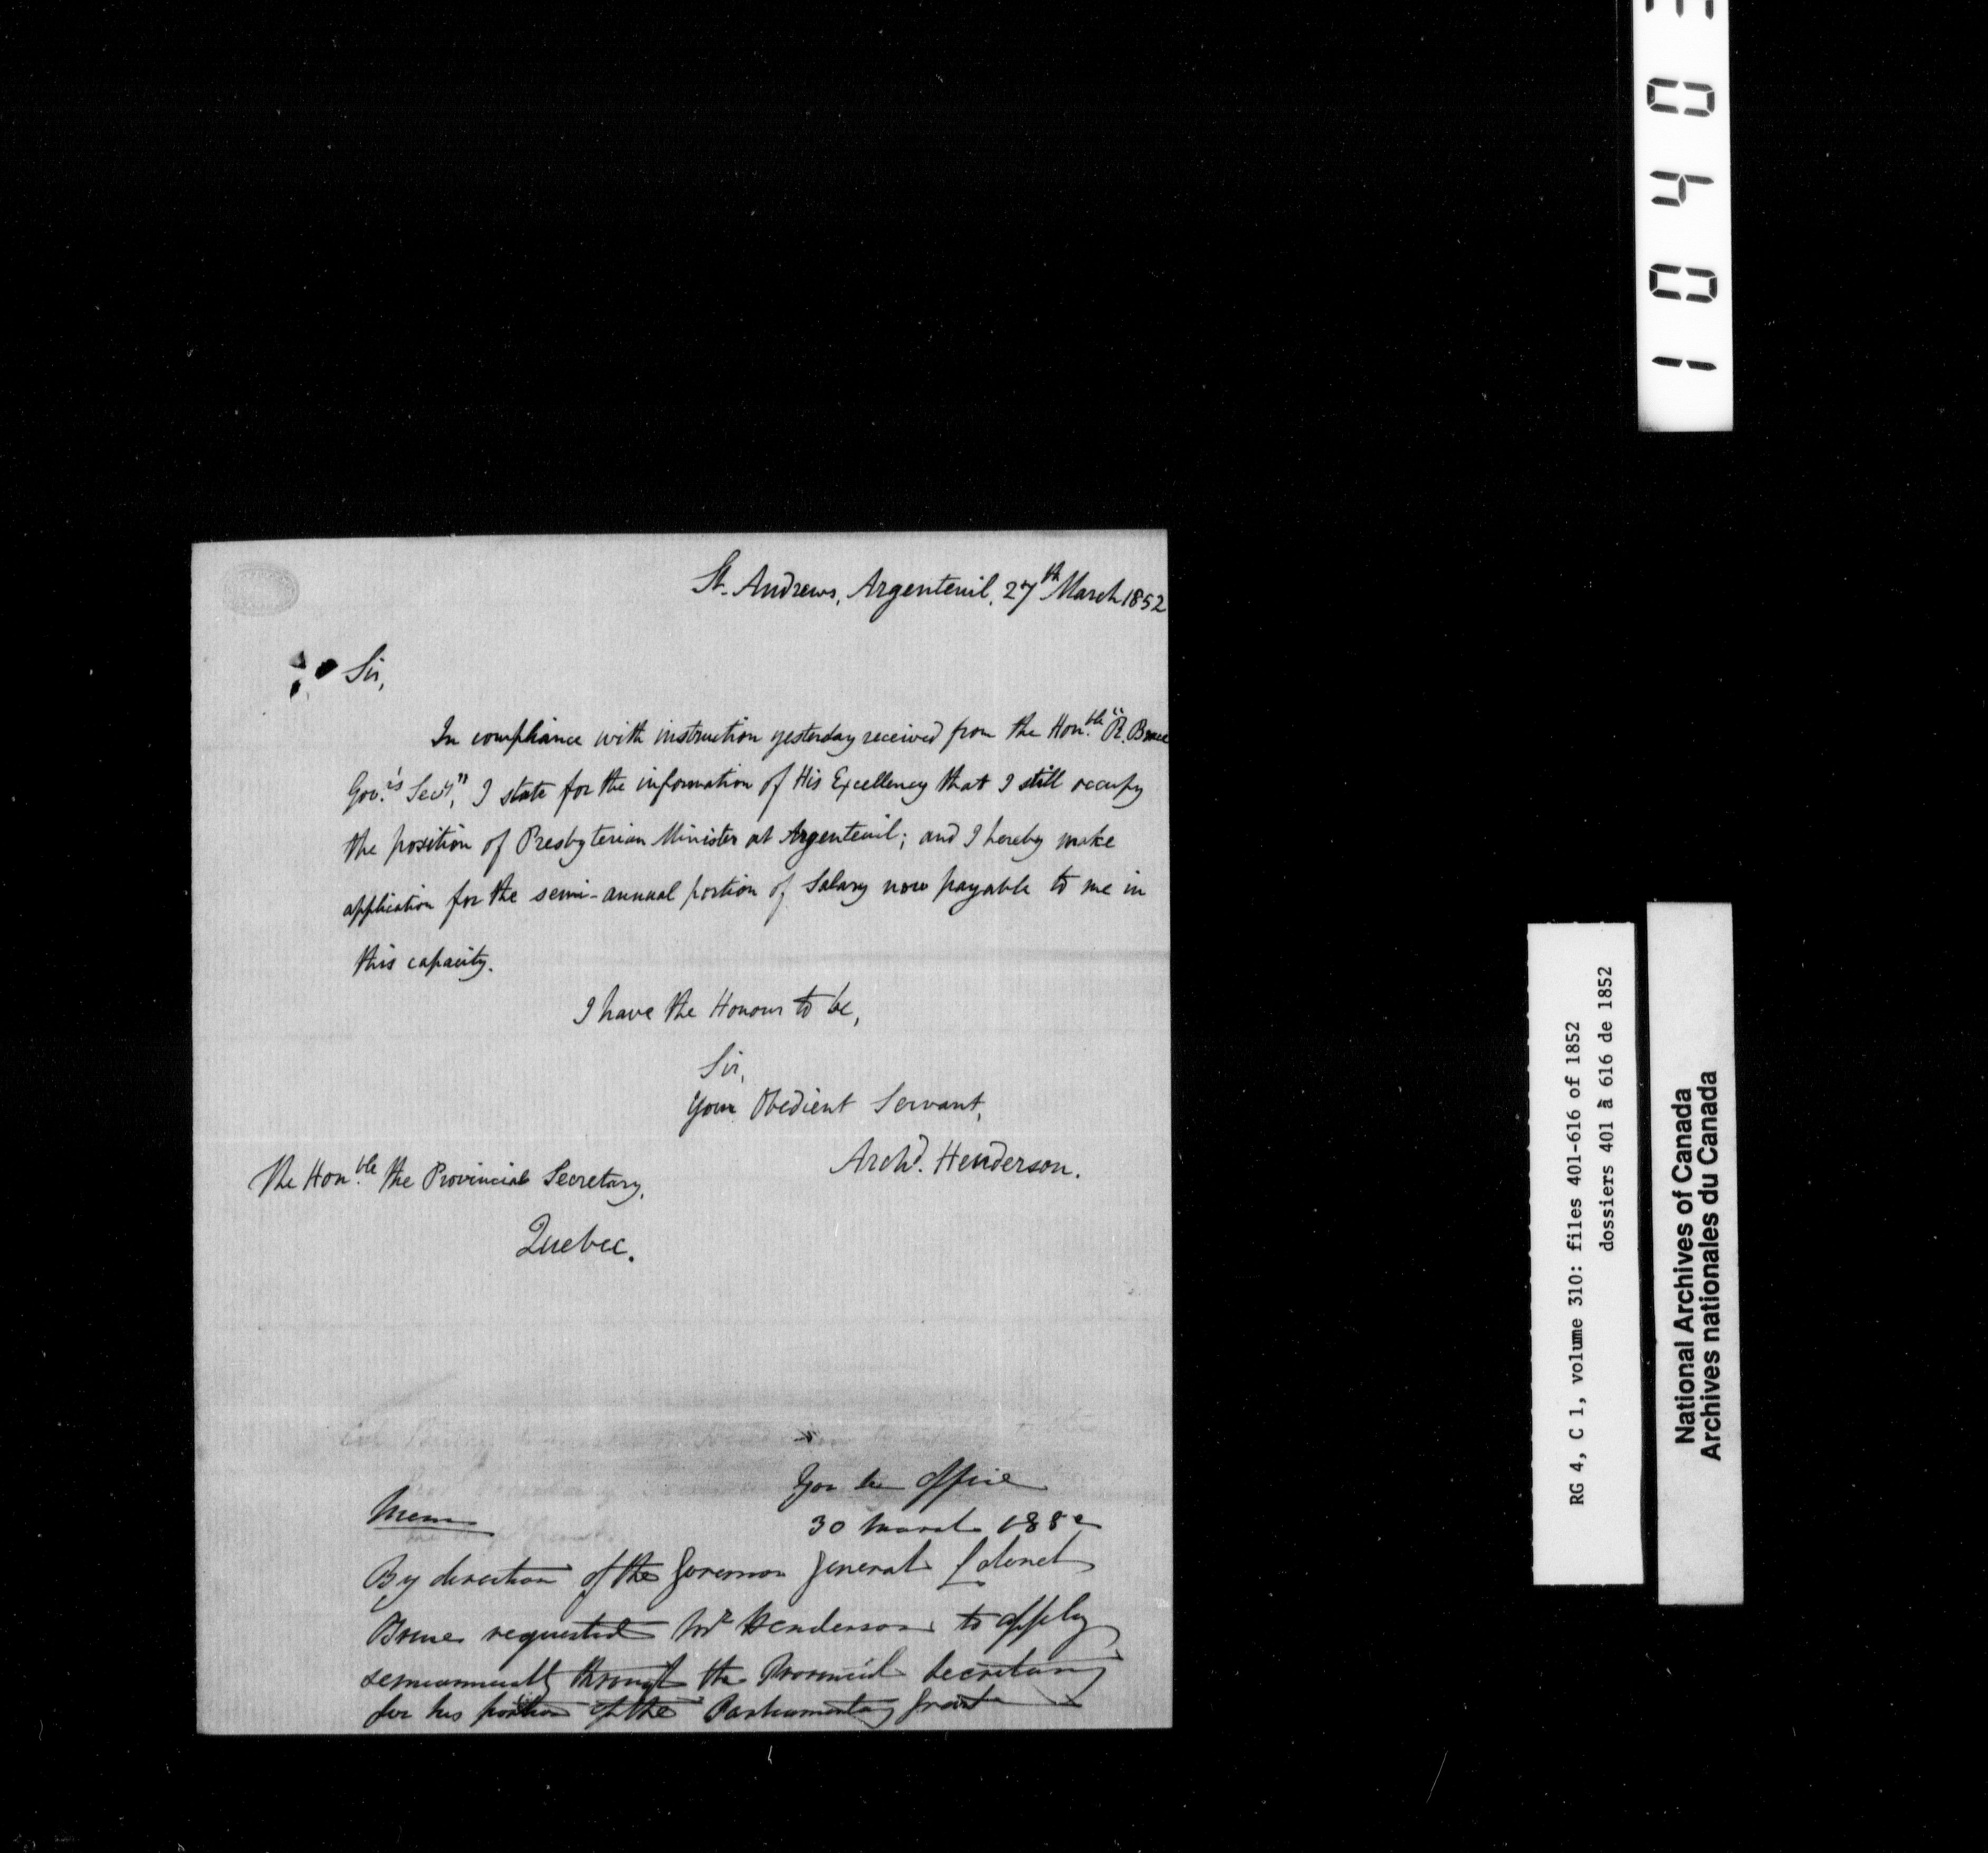 St. Andrews, Argenteuil, 27th March 1852
Sir,
In compliance with instruction yesterday received from the Honble "R. Bruce
Govr's Secy", I state for the information of His Excellency that I still occupy
the position of Presbyterian Minister at Argenteuil; and I hereby make
application for the semi-annual portion of Salary now payable to me in
this capacity.
I have the Honour to be,
Sir,
Your Obedient Servant,
Archd. Henderson.
The Honble the Provincial Secretary,
Quebec.
Gov Office
Mem
30 March 1852
By direction of the Governor General Colonel
Bruce requested Mr Henderson to apply
semiannually through the Provincial Secretary
for his portion of the Parliamentary Grant
1 0 4 0
RG 4, C 1, volume 310: files 401-616 of 1852
dossiers 401 à 616 de 1852
National Archives of Canada
Archives nationales du Canada